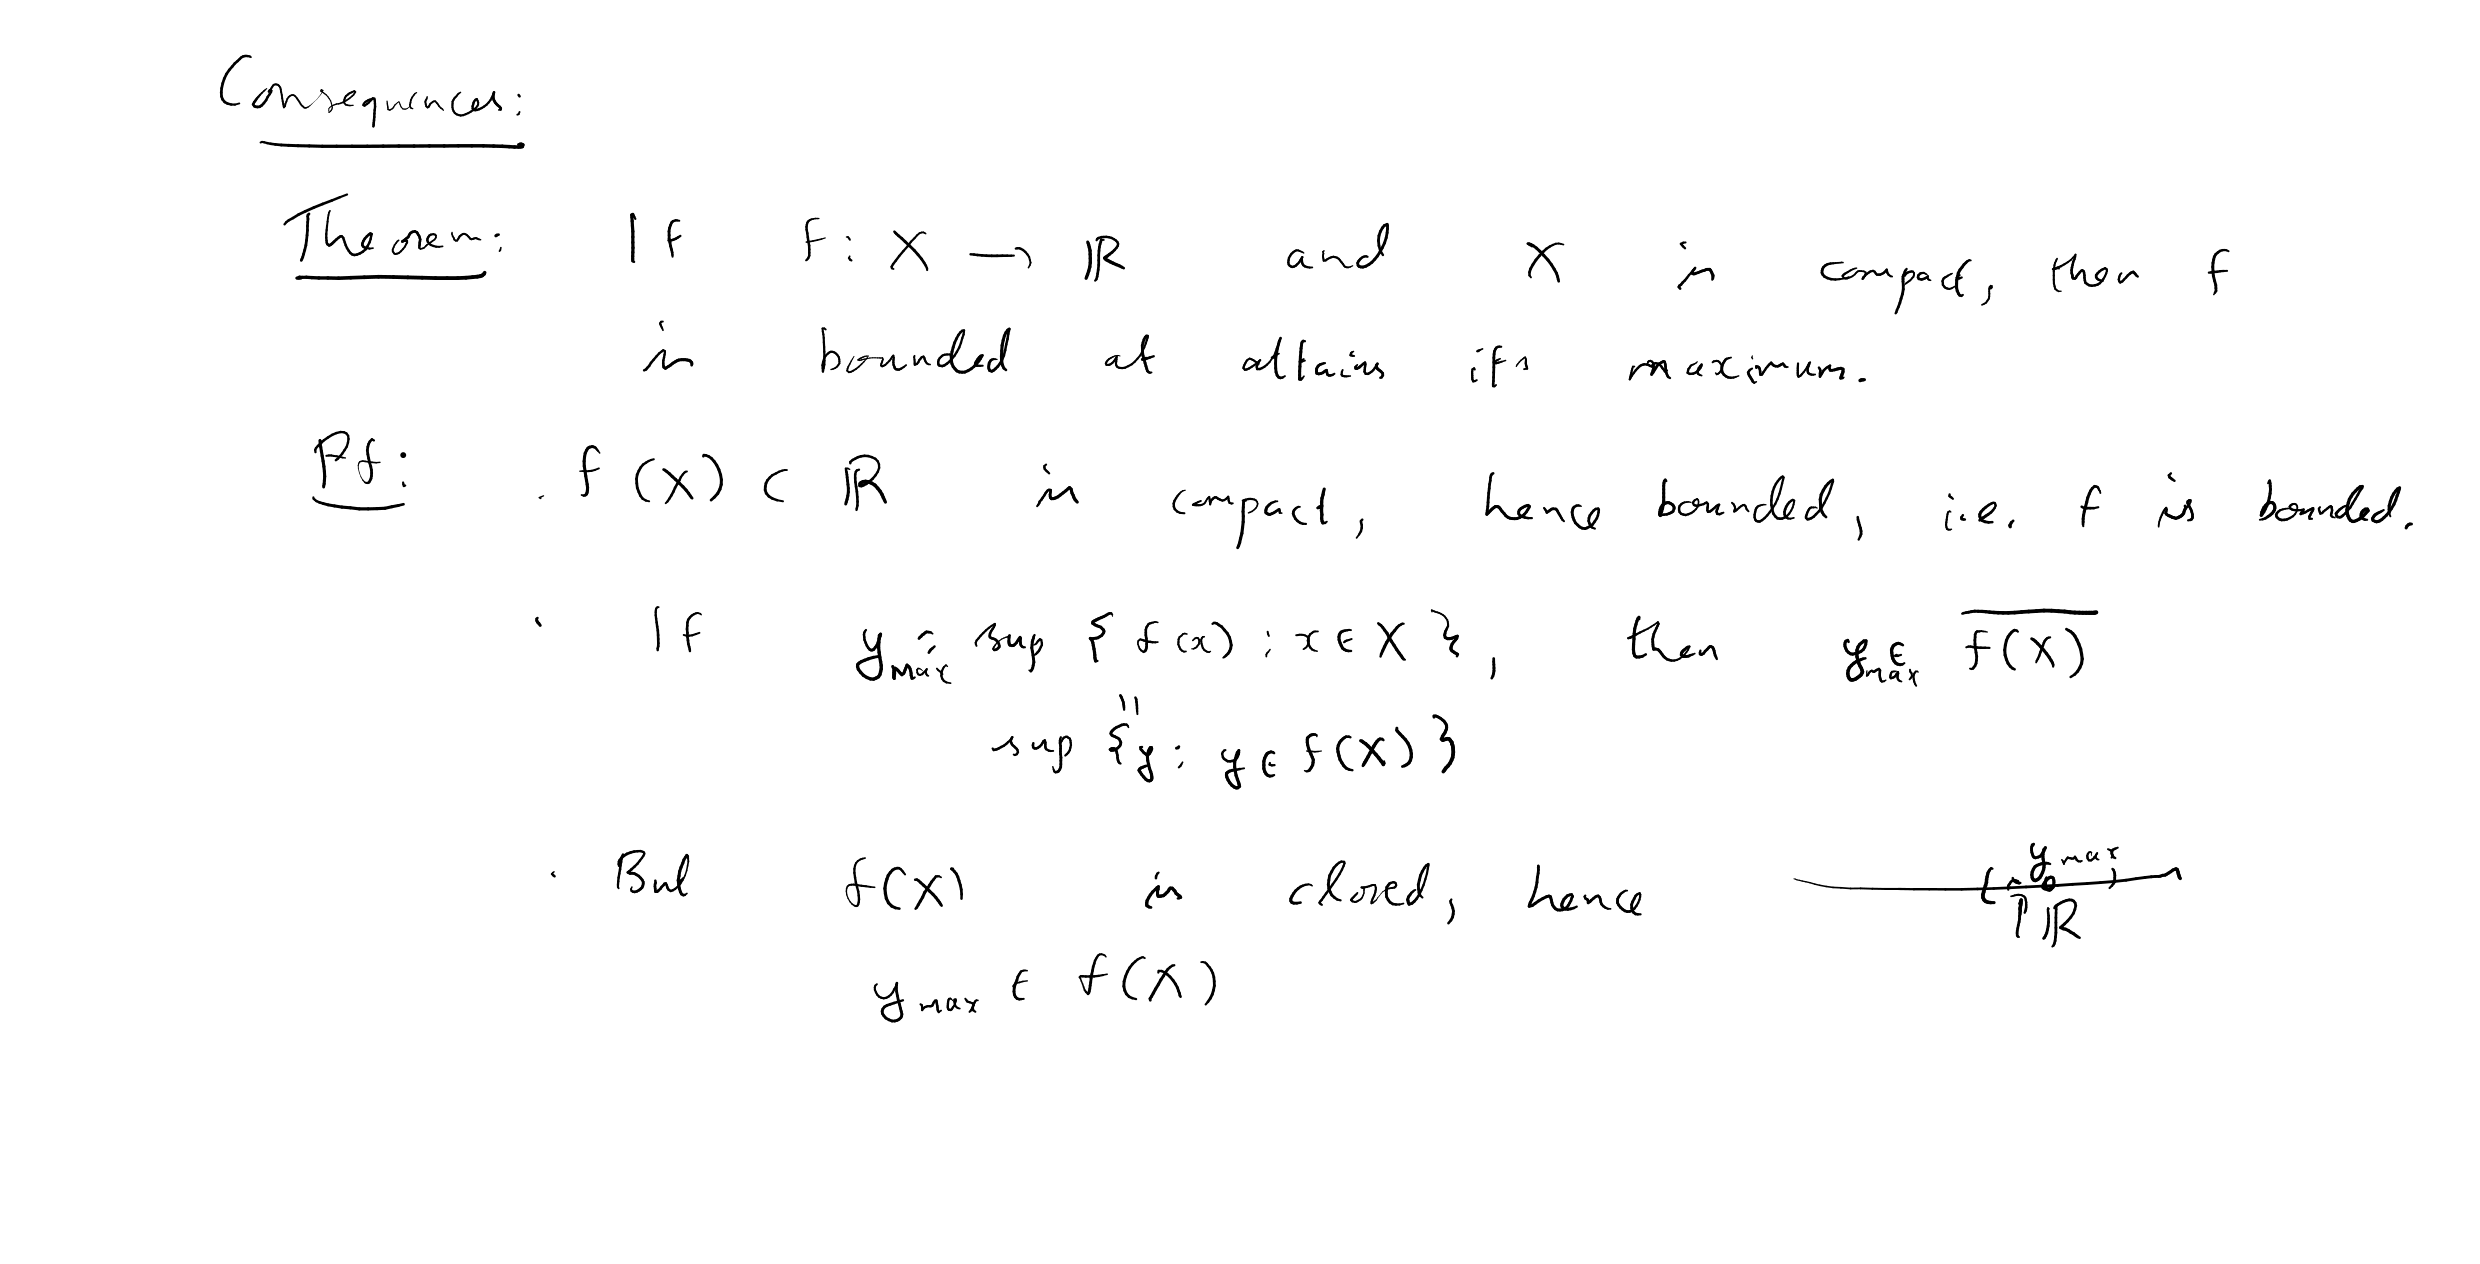 Consequences:
Theorem: If f: X → ℝ and X is compact, then f
is bounded at attains its maximum.
Pf: . f(X) ⊂ ℝ is compact, hence bounded, i.e. f is bounded.
· If y_max = sup { f(x) ; x ∈ X }, then y_max ∈ \overline{f(X)}
"
sup {y : y ∈ f(X)}
· But f(X) is closed, hence
y_max
ℝ
y_max ∈ f(X)